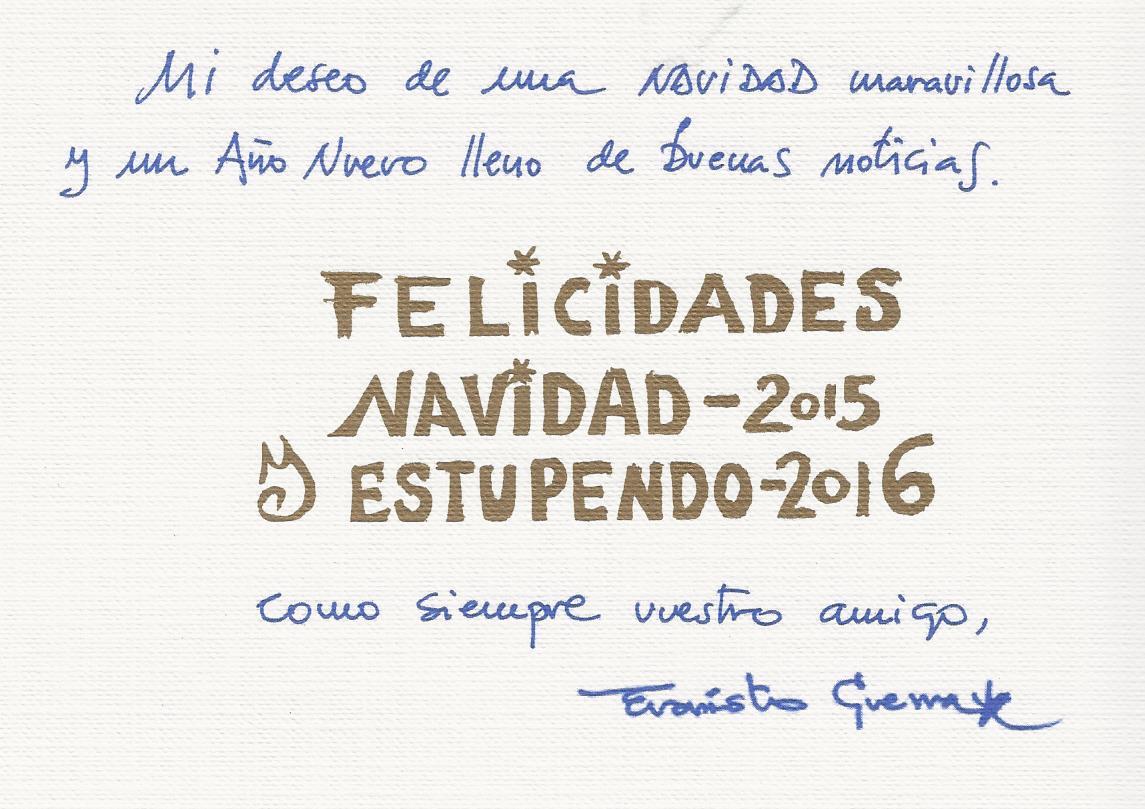 Mi deseo de una NAVIDAD maravillosa
y un Año Nuevo lleno de buenas noticias.
FELICIDADES
NAVIDAD-2015
Y ESTUPENDO-2016
como siempre vuestro amigo,
Evaristo Guerra